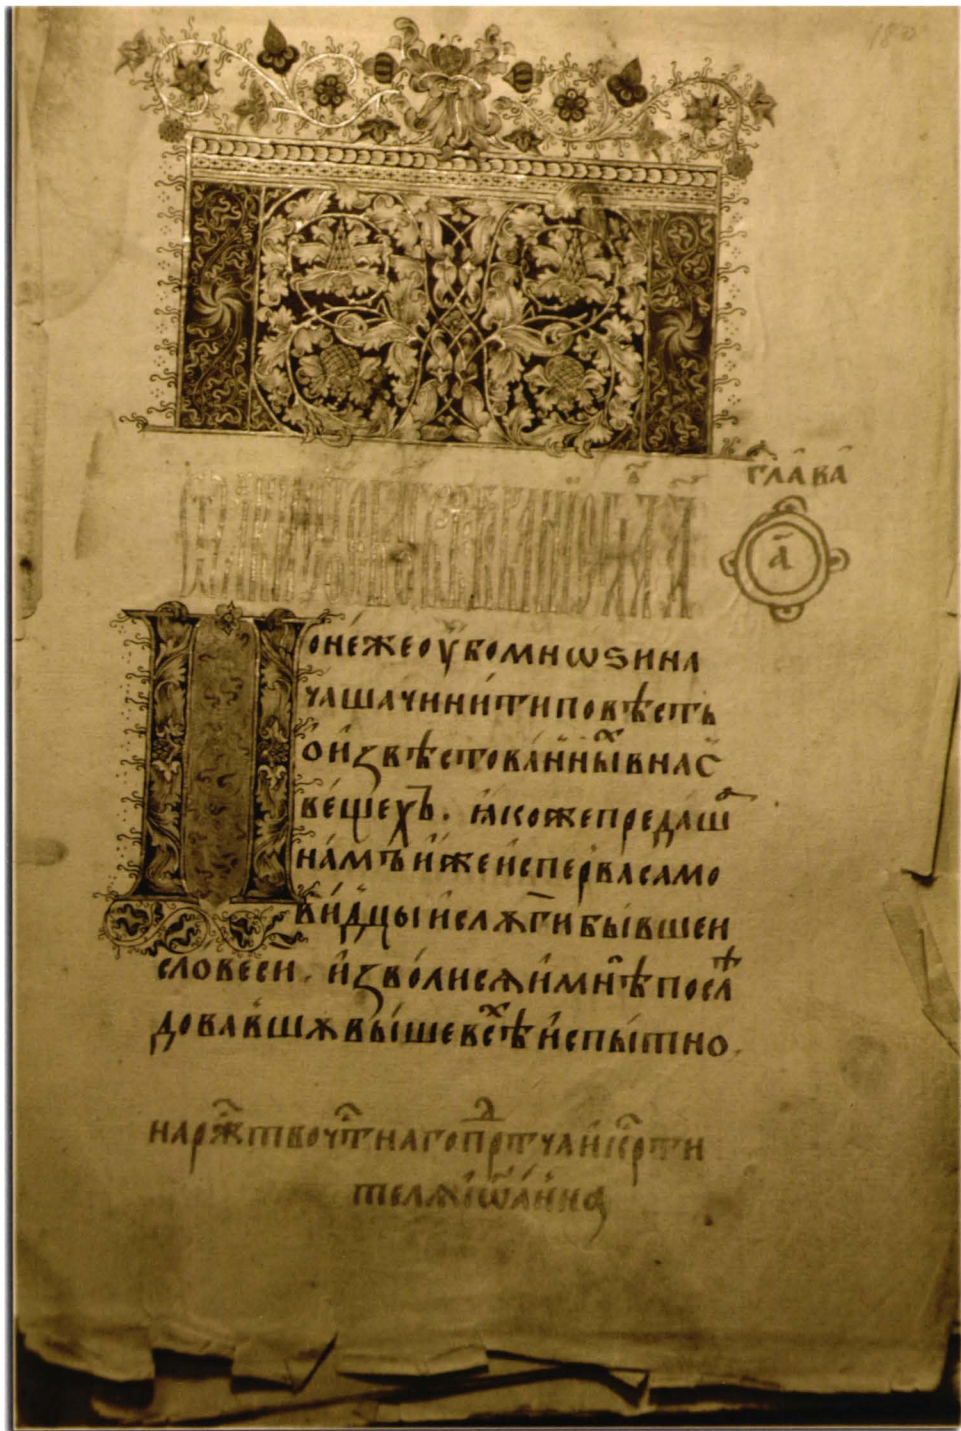 глава
а
Понежеоубомниѡѕина
чашачинитиповѣсть
оизвѣстованныхвнас
вещехъ. ꙗкожепредаш
намъижеиспервасамо
видцыислꙋгибывшеи
словеси. изволисѧимнѣпослѣ
довавшꙋвышевсѣхиспытно.
наржⷭтвочтⷭнагопрⷣтчаикрⷭти
телѧіѡанна